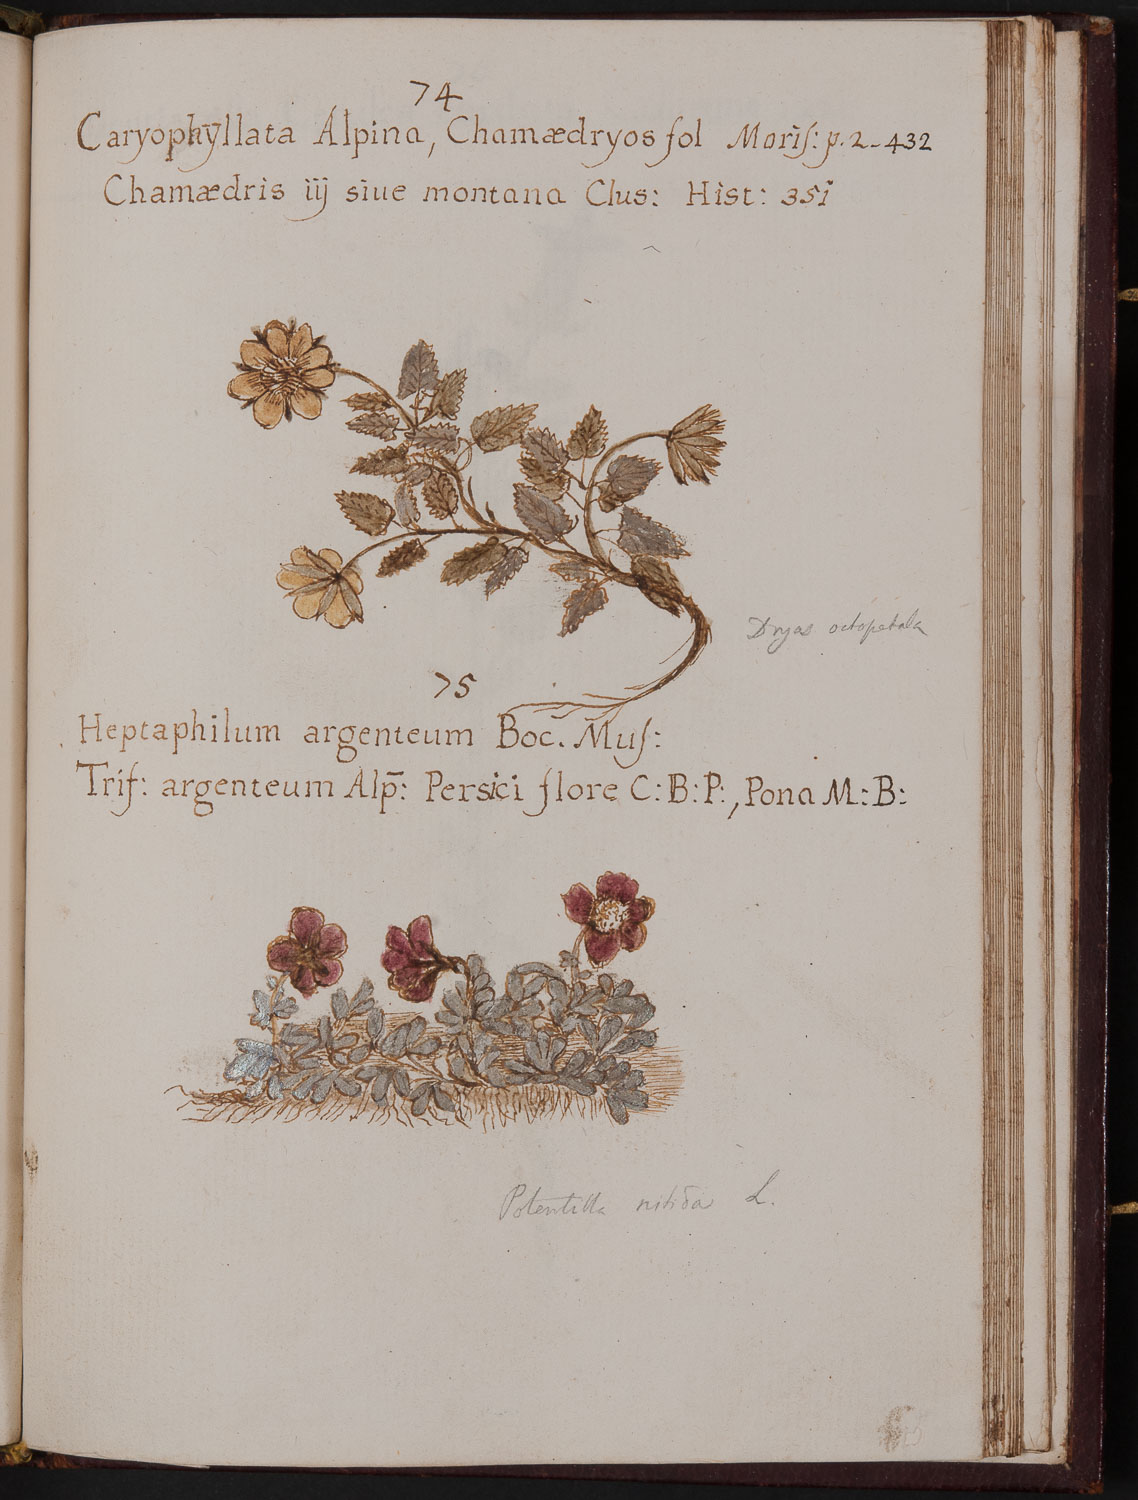 74
Caryophÿllata Alpina, Chamædryos fol Moris: p. 2-432
Chamædris iij siue montana Clus: Hist: 351
Dryas octopetala
75
Heptaphilum argenteum Boc. Mus:
Trif: argenteum Alp̄: Persici flore C: B: P:, Pona M: B:
Potentilla nitida L.